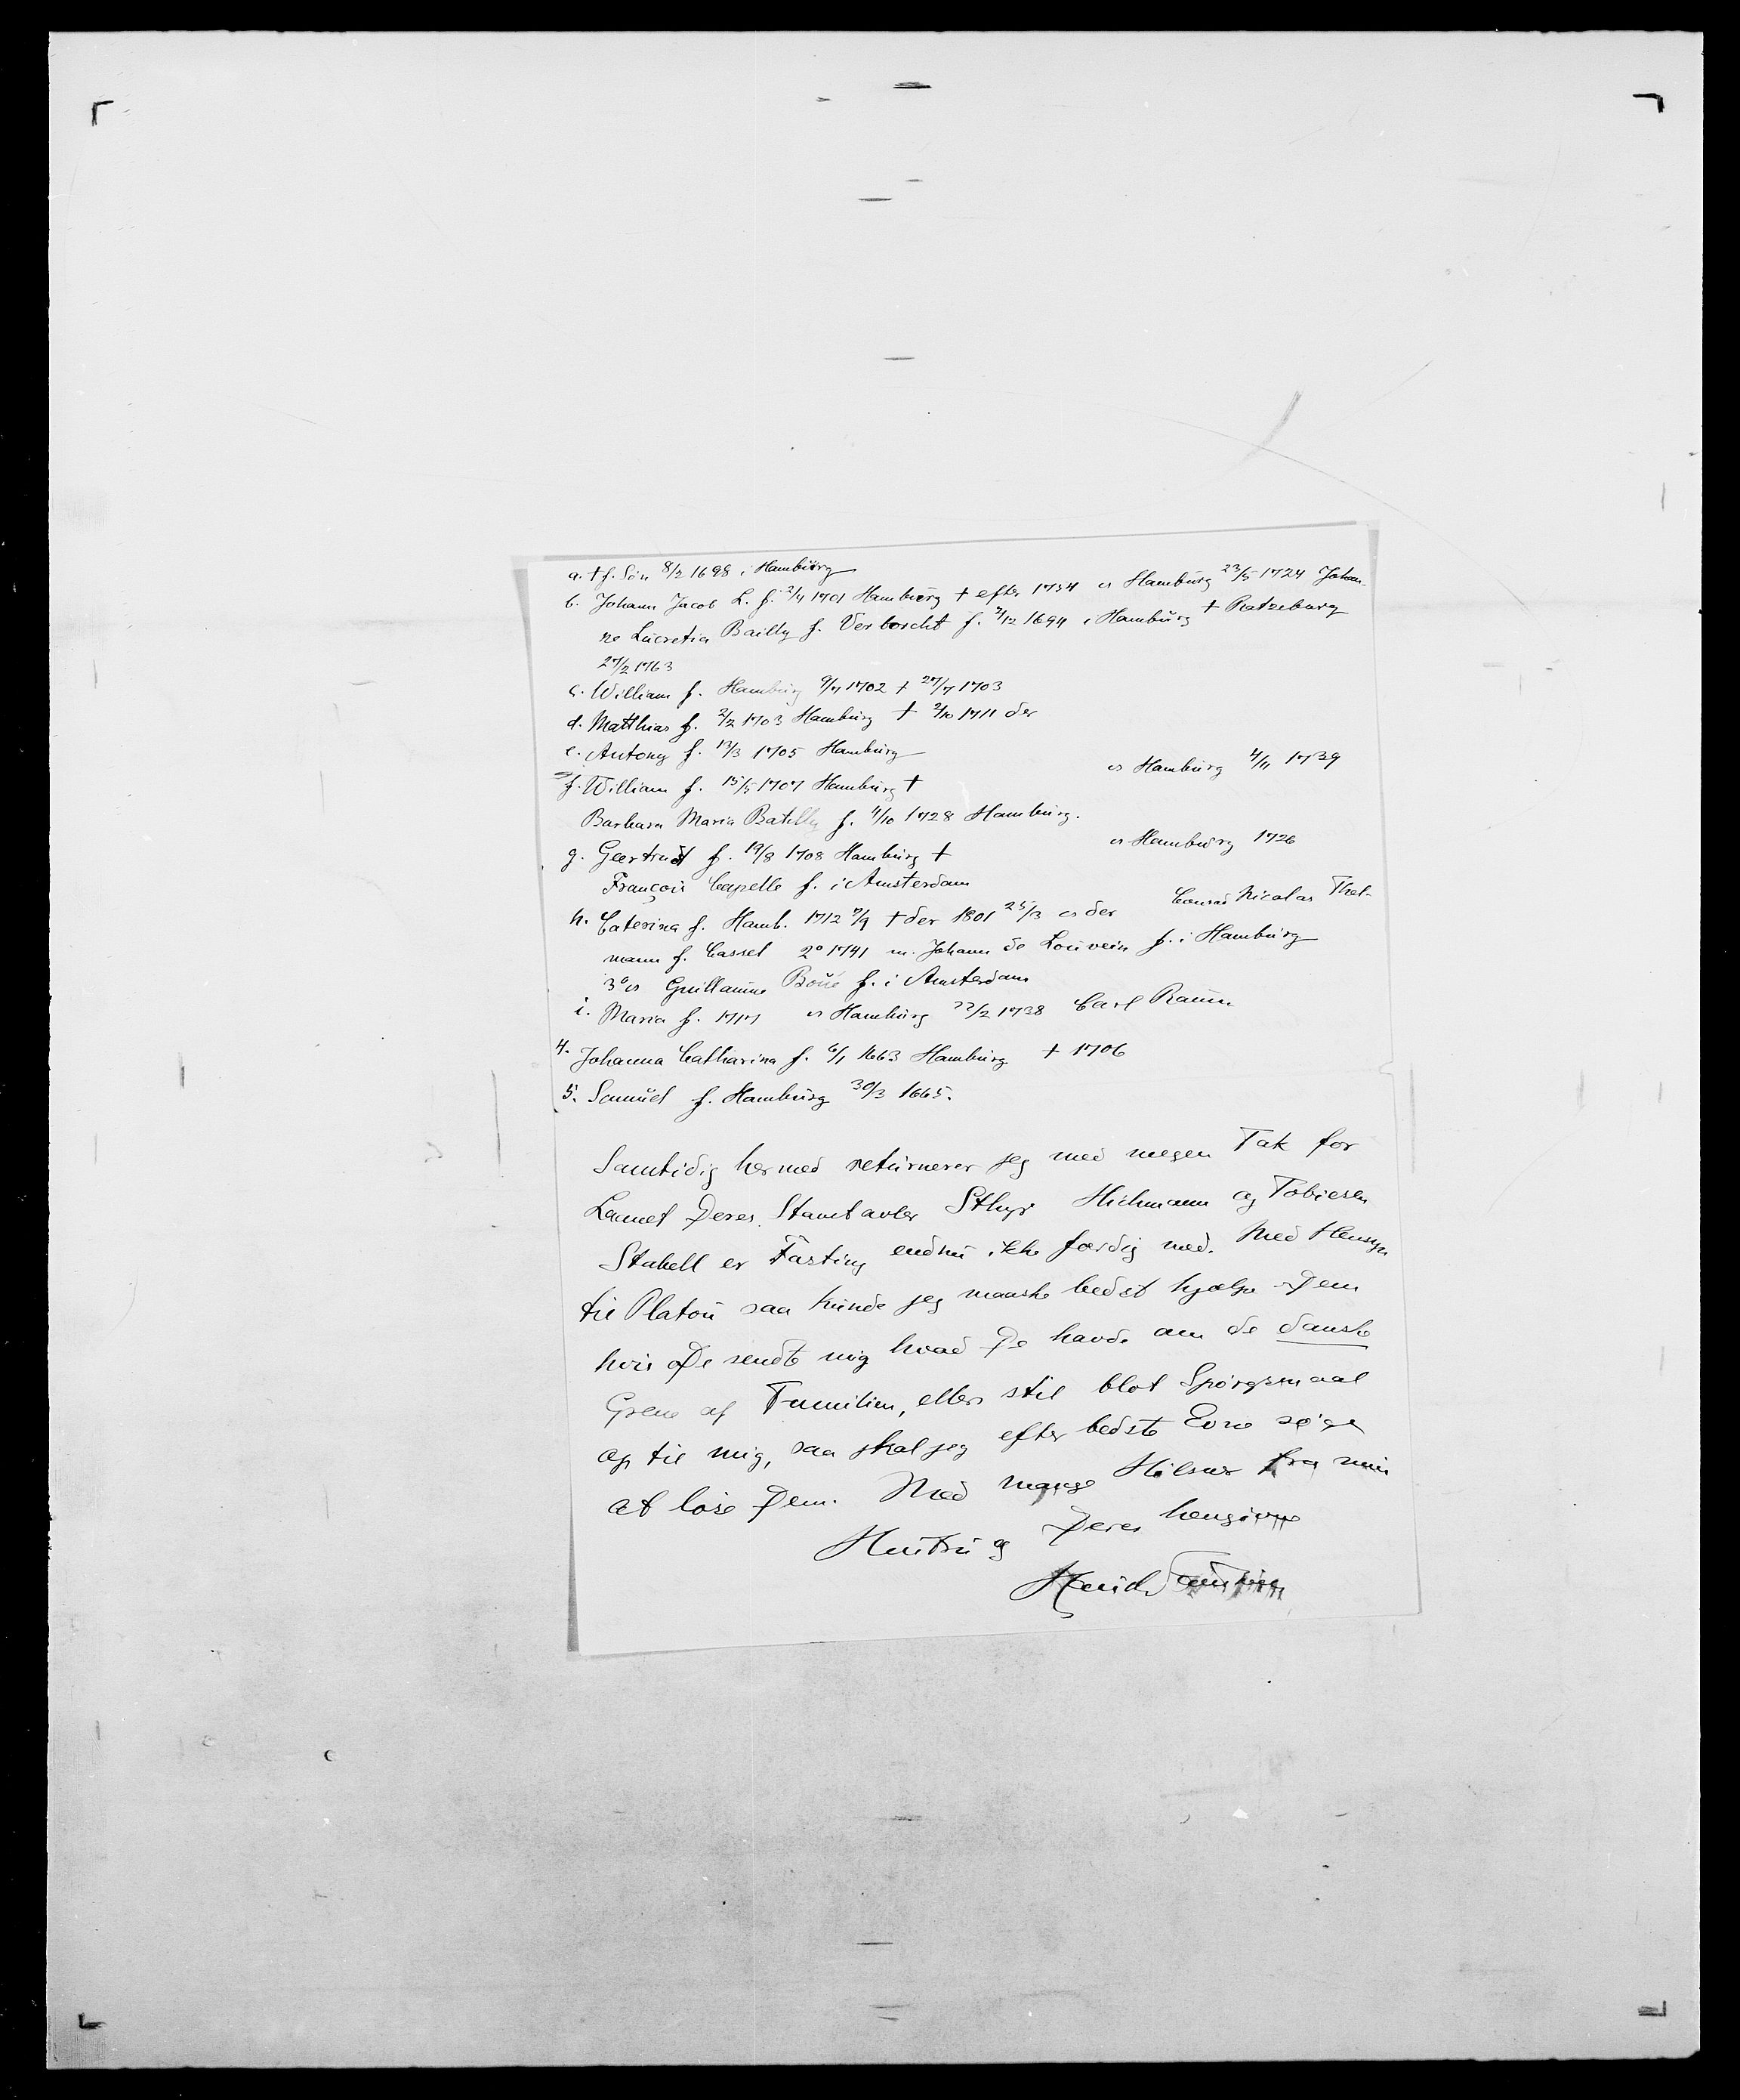 a. † f. Sön 8/2 1698 i Hamburg
b. Johann Jacob L. f. 2/4 1701 Hamburg † efter 1754 ∞ Hamburg 23/5 1724 Johan-
ne Lucretia Bailly f. Verborcht f. 7/12 1694 i Hamburg † Ratzeburg
27/2 1763
c. William f. Hamburg 9/7 1702 † 27/7 1703
d. Matthias f. 2/2 1703 Hamburg † 2/10 1711 der
e. Antony f. 13/3 1705 Hamburg
f. William f. 15/5 1707 Hamburg † ∞ Hamburg 4/11 1739
Barbara Maria Batilly f. 4/10 1728 Hamburg.
g. Geertrudt f. 19/8 1708 Hamburg † ∞ Hamburg 1726
François Capelle f. i Amsterdam
h. Caterina f. Hamb. 1712 7/9 † der 1801 25/3 ∞ der Conrad Nicolas Thal-
mann f. Cassel 2º 1741 m. Johann de Louvein f. i Hamburg
3º ∞ Guillaume Boué f. i Amsterdam
i. Maria f. 1717 ∞ Hamburg 22/2 1738 Carl Raum
4. Johanna Catharina f. 6/1 1663 Hamburg † 1706
5. Samuel f. Hamburg 30/3 1665.
Samtidig hermed returnerer jeg med megen Tak for
Laanet Deres Stamtavler Sthyr Hichmann og Tobiesen
Stabell er Fasting endnu ikke færdig med. Med Hensyn
til Platou saa kunde jeg maaske bedst hjælpe Dem
hvis De sendte mig hvad De havde om de danske
Grene af Familien, ellers stil blot Spørgsmaal
op til mig, saa skal jeg efter bedste Evne søge
at løse Dem. Med mange Hilsner fra min
Hustru og Deres hengivne